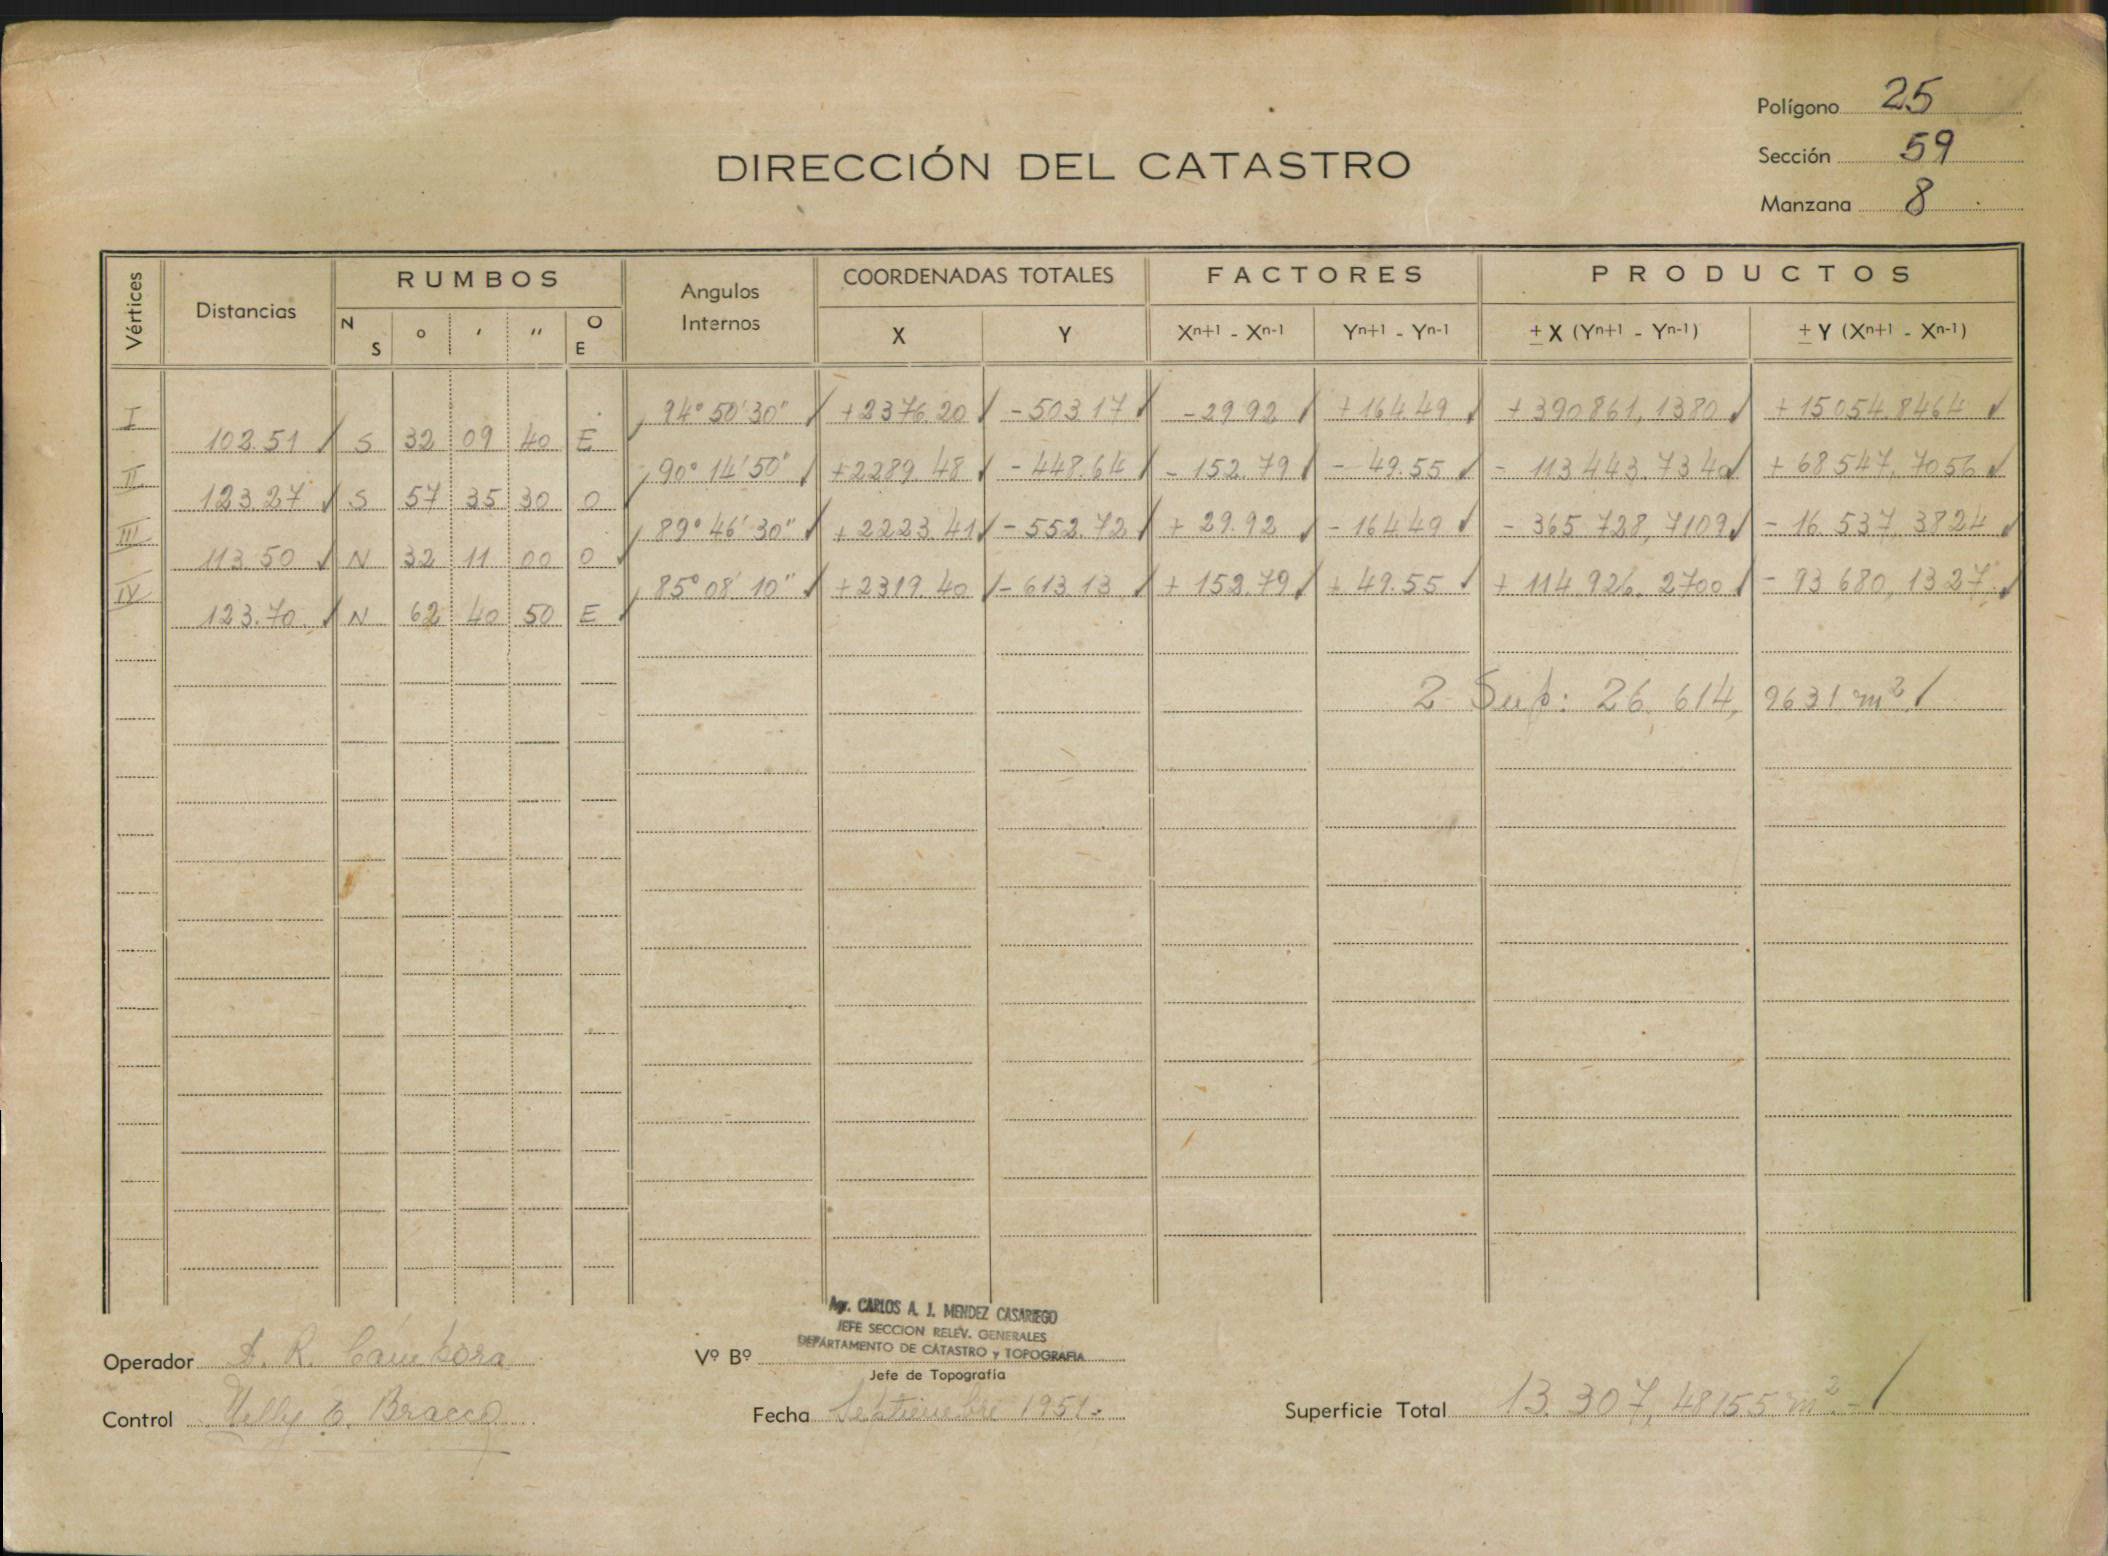 Polígono 25
Sección 59
Manzana 8
DIRECCIÓN DEL CATASTRO
Vértices Distancias RUMBOS Angulos Internos COORDENADAS TOTALES FACTORES PRODUCTOS
N S ° ' '' O E X Y Xn+1 - Xn-1 Yn+1 - Yn-1 ± X (Yn+1 - Yn-1) ± Y (Xn+1 - Xn-1)
I 94° 50' 30" +2376.20 -503.17 -29.92 +164.49 +390.861,1380 +15.054.8464
102.51 S 32 09 40 E
II 90° 14' 50" +2289.48 -448.64 -152.79 -49.55 -113.443.7340 +68.547,7056
123.27 S 57 35 30 O
III 89° 46' 30" +2223.41 -552.72 +29.92 -164.49 -365.728,7109 -16.537,3824
113.50 N 32 11 00 O
IV 85° 08' 10" +2319.40 -613.13 +152.79 +49.55 +114.926.2700 -93.680,1327
123.70 N 62 40 50 E
2 Sup: 26.614,9631 m²
Agr. CARLOS A. J. MENDEZ CASARIEGO
JEFE SECCION RELEV. GENERALES
DEPARTAMENTO DE CATASTRO y TOPOGRAFIA
Operador A. R. Cámpora
Vº Bº
Jefe de Topografía
Control Nelly E. Bracco
Fecha Septiembre 1951.
Superficie Total 13.307,48155 m².-